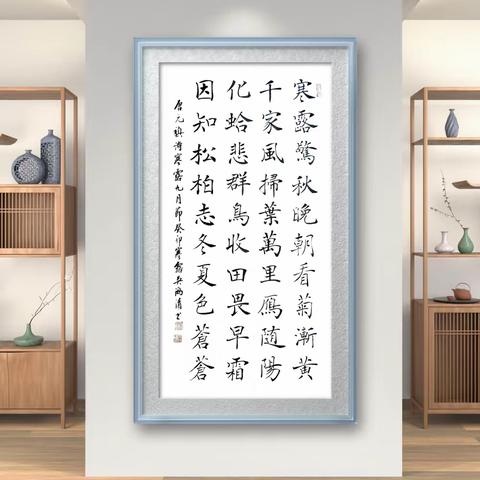 寒露驚秋晚朝看菊漸黃
千家風掃葉萬里鴈随陽
化蛤悲群鳥收田畏早霜
因知松柏志冬夏色蒼蒼
唐元稹詩寒露九月節癸卯寒露